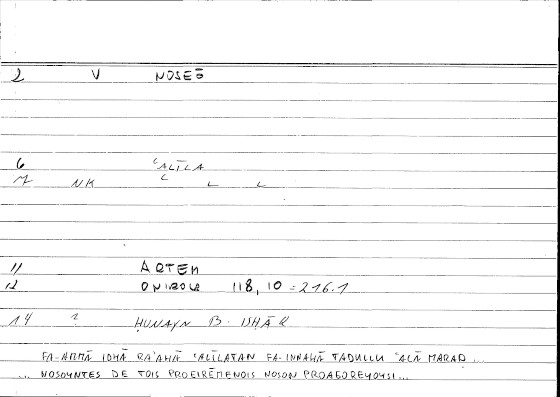 2 V NOSEŌ
6 ʿALĪLA
7 NK
11 ARTEM
12 ONIROCR 118, 10 = 216.1
14 ? ḤUNAYN B. ISḤĀQ
FA-AMMĀ IDHĀ RAʾAHĀ ʿALĪLATAN FA-INNAHĀ TADULLU ʿALĀ MARAḌ ...
... NOSOYNTES DE TOIS PROEIRĒMENOIS NOSON PROAGOREYOYSI ...